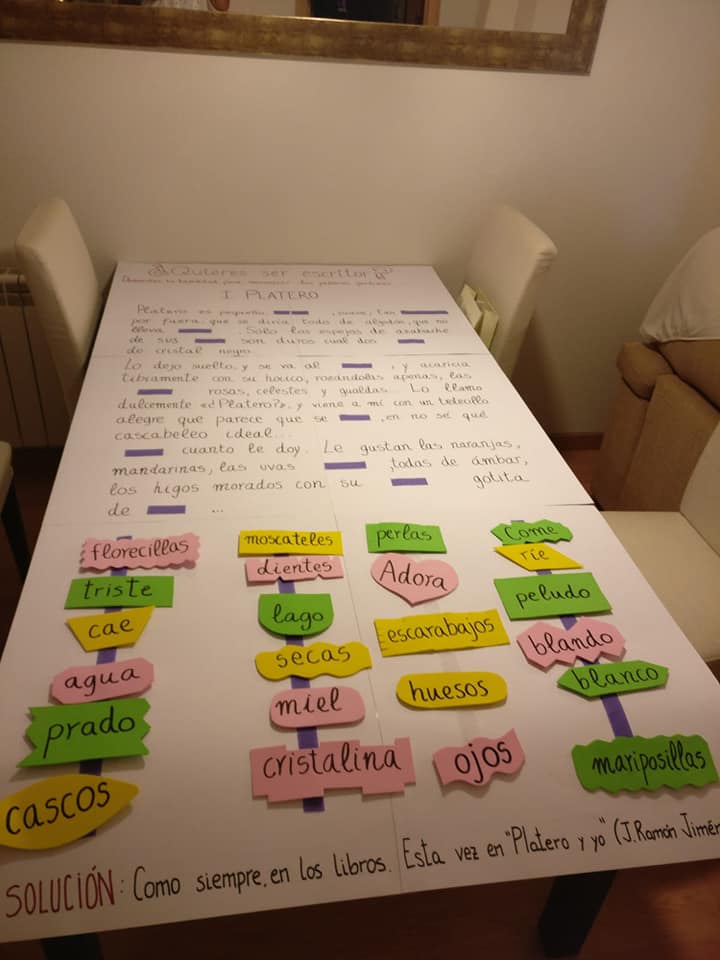 ¿Quieres ser escritor?
I PLATERO
Platero es pequeño, , suave; tan
por fuera, que se diría todo de algodón, que no
lleva . Sólo los espejos de azabache
de sus son duros cual dos
de cristal negro.
Lo dejo suelto, y se va al , y acaricia
tibiamente con su hocico, rozándolas apenas, las
rosas, celestes y gualdas. Lo llamo
dulcemente «¿Platero?», y viene a mí con un trotecillo
alegre que parece que se , en no sé qué
cascabeleo ideal...
cuanto le doy. Le gustan las naranjas,
mandarinas, las uvas todas de ámbar,
los higos morados con su gotita
de ...
florecillas moscateles perlas Come
triste dientes Adora ríe
cae lago escarabajos peludo
agua secas huesos blando
prado miel ojos blanco
cascos cristalina mariposillas
SOLUCIÓN: Como siempre, en los libros. Esta vez en "Platero y yo" (J. Ramón Jimén